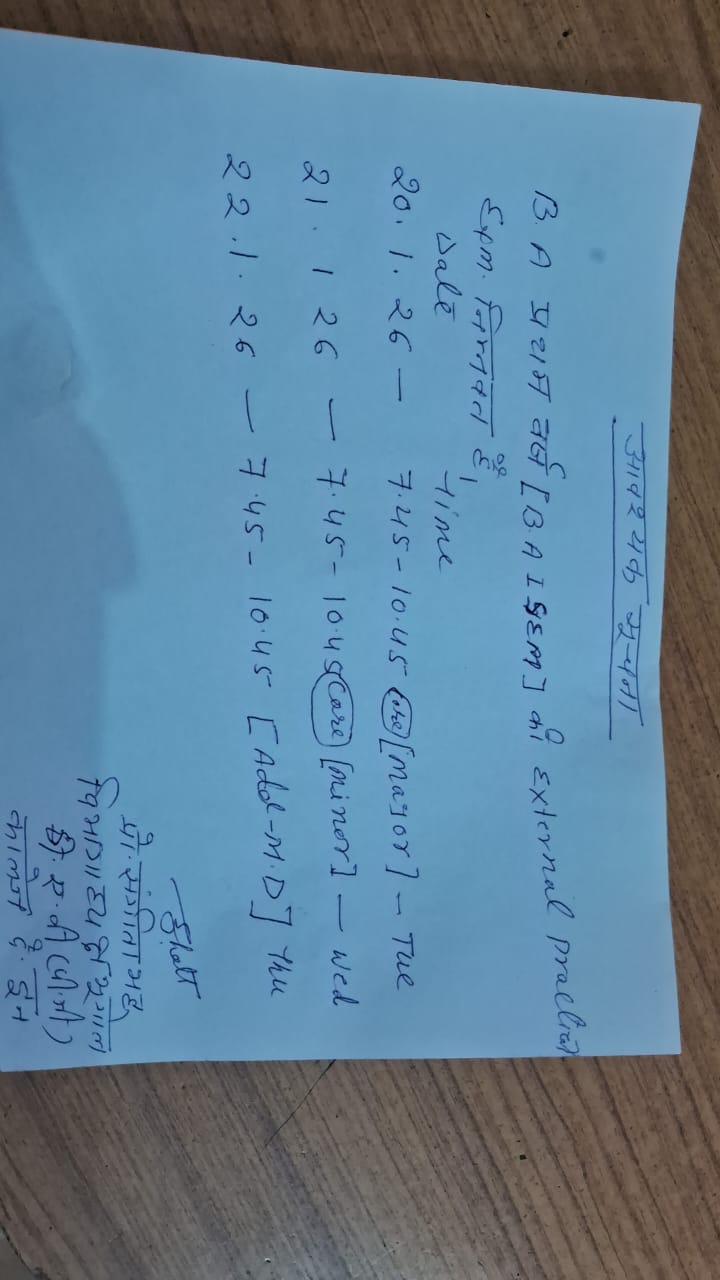 आवश्यक सूचना
B.A प्रथम वर्ष [B.A I SEM] की External practical
Exm. निम्नवत है
Date time
20.1.26 — 7.45-10.45 Core [major] - Tue
21.1 26 — 7.45-10.45 Core [minor] — Wed
22.1.26 — 7.45-10.45 [Add-M.D] thu
विभागाध्यक्ष
डी.ए.वी (पी.जी)
कालेज दे. दून